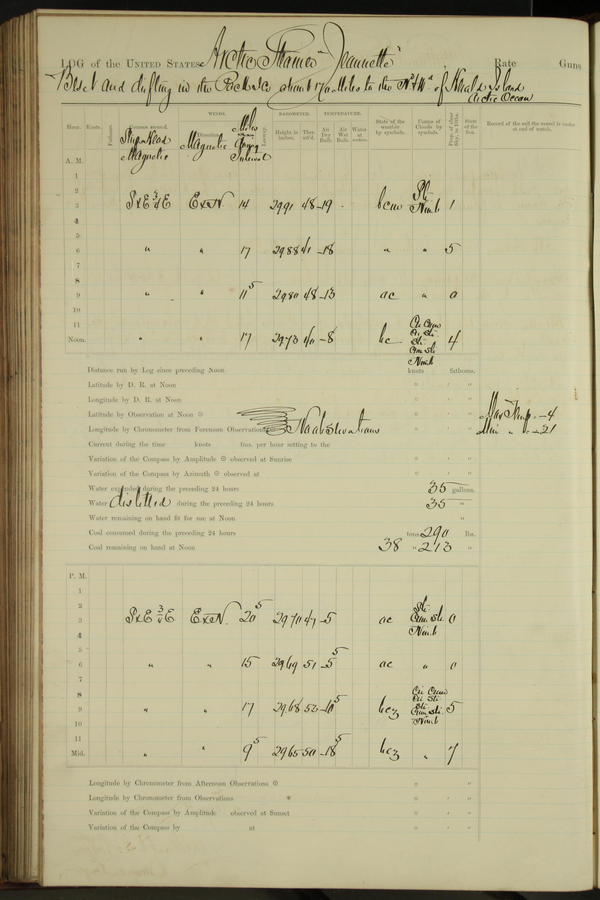 LOG of the UNITED STATES Arctic Steamer "Jeannette" Rate Guns
Beset and drifting in the Pack Ice about 170 Miles to the Nd & Wd of Herald Island
Arctic Ocean
Hour. Knots. Fathoms. Courses steered. WINDS. Direction. Leeway. BAROMETER. Height in inches. Ther. att'd. TEMPERATURE. Air Dry Bulb. Air Wet Bulb. Water at surface. State of the weather by symbols. Forms of Clouds by symbols. Prop. of clear Sky, in 10ths. State of the Sea. Record of the sail the vessel is under at end of watch.
Ship's Head Magnetic Magnetic Miles
A. M.
1
2
3 S & E 3/4 E E x N 14 29 91 48 -19 bcm Str Nimb 1
4
5
6 " " 17 29 88 41 -18 " " 5
7
8
9 " " 11 5 29 80 48 -13 oc " 0
10
11
Noon. " " 17 29 73 40 -8 bc Cir Cum Cir Str Str Cum Str Nimb 4
Distance run by Log since preceding Noon knots fathoms.
Latitude by D. R. at Noon ° ' "
Longitude by D. R. at Noon ° ' "
Latitude by Observation at Noon ° ' " Max Temp. -4
Longitude by Chronometer from Forenoon Observations No observations ° ' " Min " -21
Current during the time knots fms. per hour setting to the
Variation of the Compass by Amplitude observed at Sunrise ° ' "
Variation of the Compass by Azimuth observed at ° ' "
Water expended during the preceding 24 hours 35 gallons.
Water distilled during the preceding 24 hours 35 "
Water remaining on hand fit for use at Noon "
Coal consumed during the preceding 24 hours tons 290 lbs.
Coal remaining on hand at Noon 38 " 213 "
P. M.
1
2
3 S & E 3/4 E E x N. 20 5 29 70 47 -5 oc Str Cum Str Nimb 0
4
5
6 " " 15 29 69 51 -5 5 oc " 0
7
8
9 " " 17 29 68 53 -10 5 bcz Cir Cum Cir Str Str Cum Str. Nimb 5
10
11
Mid. " " 9 5 29 65 50 -18 5 bcz " 7
Longitude by Chronometer from Afternoon Observations ° ' "
Longitude by Chronometer from Observations ° ' "
Variation of the Compass by Amplitude observed at Sunset ° ' "
Variation of the Compass by at ° ' "